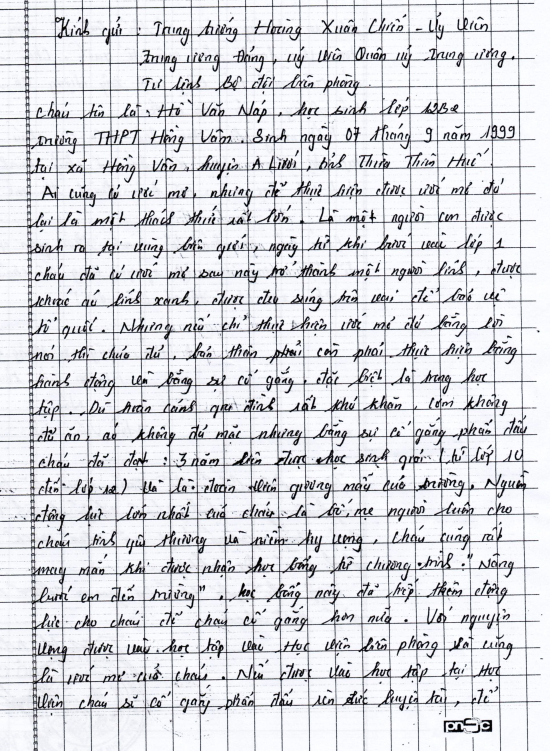 Kính gửi : Trung tướng Hoàng Xuân Chiến - Uỷ viên
Trung ương Đảng, uỷ viên Quân uỷ Trung ương.
Tư lệnh Bộ đội biên phòng.
cháu tên là : Hồ Văn Náp, học sinh lớp 12B2
trường THPT Hồng Vân. Sinh ngày 07 tháng 9 năm 1999
tại xã Hồng Vân, huyện A Lưới, tỉnh Thừa Thiên Huế.
Ai cũng có ước mơ, nhưng để thực hiện được ước mơ đó
lại là một thách thức rất lớn. Là một người con được
sinh ra tại vùng biên giới, ngày từ khi bước vào lớp 1
cháu đã có ước mơ sau này trở thành một người lính, được
khoác áo lính xanh, được đeo súng trên vai để bảo vệ
tổ quốc. Nhưng nếu chỉ thực hiện ước mơ đó bằng lời
nói thì chưa đủ, bản thân phải còn phải thực hiện bằng
hành động và bằng sự cố gắng, đặc biệt là trong học
tập. Dù hoàn cảnh gia đình rất khó khăn, cơm không
đủ ăn, áo không đủ mặc nhưng bằng sự cố gắng phấn đấu
cháu đã đạt : 3 năm liền được học sinh giỏi (từ lớp 10
đến lớp 12) và là đoàn viên gương mẫu của trường. Nguồn
động lực lớn nhất của cháu là bố, mẹ người luôn cho
cháu tình yêu thương và niềm hy vọng, cháu cũng rất
may mắn khi được nhận học bổng từ chương trình "Nâng
bước em đến trường". học bổng này đã tiếp thêm động
lực cho cháu để cháu cố gắng hơn nữa. Với nguyện
vọng được vào học tập vào Học viện biên phòng và cũng
là ước mơ của cháu. Nếu được vào học tập tại Học
viện cháu sẽ cố gắng phấn đấu rèn đức luyện tài, để
pnSc